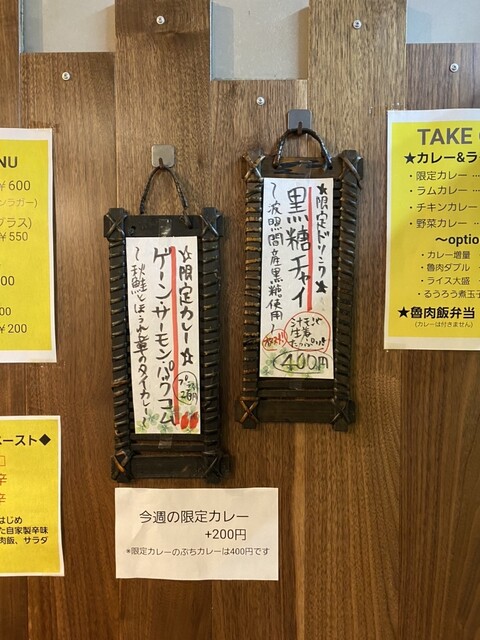 NU
￥600
ンラガー)
グラス)
￥550
00
00
￥200
ースト◆
辛
辛
はじめ
た自家製辛味
肉飯、サラダ
☆限定カレー☆
ゲーン・サーモン・パクコム
～秋鮭とほうれん草のタイカレー～
☆限定ドリンク☆
黒糖チャイ
～波照間産黒糖使用～
シナモンや
生姜
たっぷり!!
400円
今週の限定カレー
+200円
*限定カレーのぷちカレーは400円です
TAKE
★カレー&ラ
・限定カレー …
・ラムカレー …
・チキンカレー
・野菜カレー …
～optio
・カレー増量
・魯肉ダブル
・ライス大盛
・るうろう煮玉子
★魯肉飯弁当
(カレーは付きません)